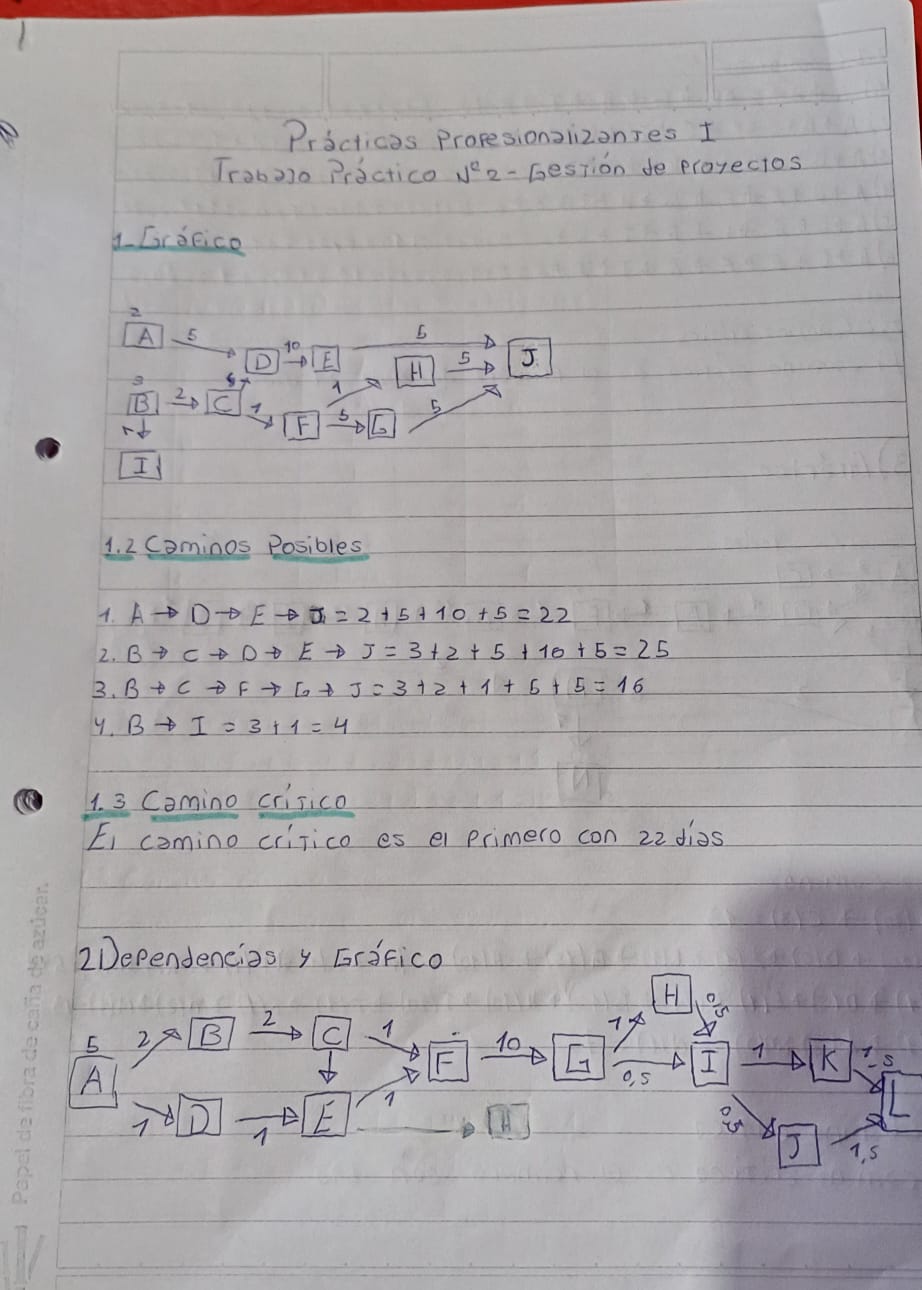 Prácticas Profesionalizantes I
Trabajo Práctico Nº2 - Gestión de proyectos
1- Gráfico
2
A 5 D 10 E 5 J
H 5
3
B 2 C 5 1 F 1 5 G 5
1
I
1.2 Caminos Posibles
1. A → D → E → J = 2 + 5 + 10 + 5 = 22
2. B → C → D → E → J = 3 + 2 + 5 + 10 + 5 = 25
3. B → C → F → G → J = 3 + 2 + 1 + 5 + 5 = 16
4. B → I = 3 + 1 = 4
1.3 Camino crítico
El camino crítico es el primero con 22 días
2 Dependencias y Gráfico
H 0,5
5 2 B 2 C 1 F 10 G 1 0,5 I 1 K 1,5
A L
1 D 1 E 1 H 0,5 J 1,5
Papel de fibra de caña de azúcar.